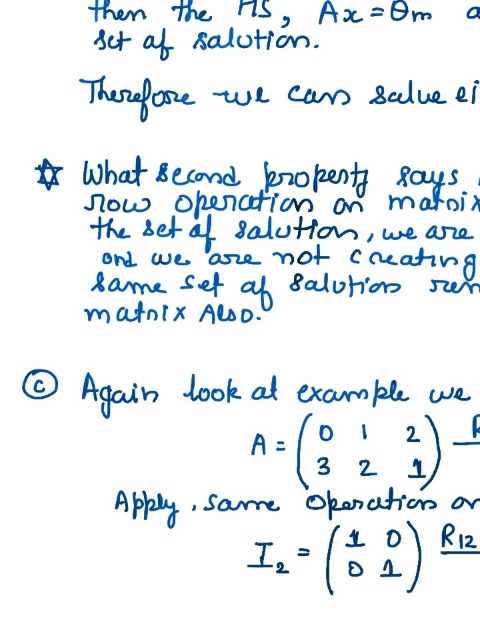 then the HS, Ax = θm a
set of solution.
Therefore we can solve ei
☆ What second property says
row operation on matrix
the set of solution, we are
and we are not creating
same set of solution rem
matrix Also.
Ⓒ Again look at example we
A = ( 0 1 2
3 2 1 ) R
Apply, same operation on
I₂ = ( 1 0
0 1 ) R12